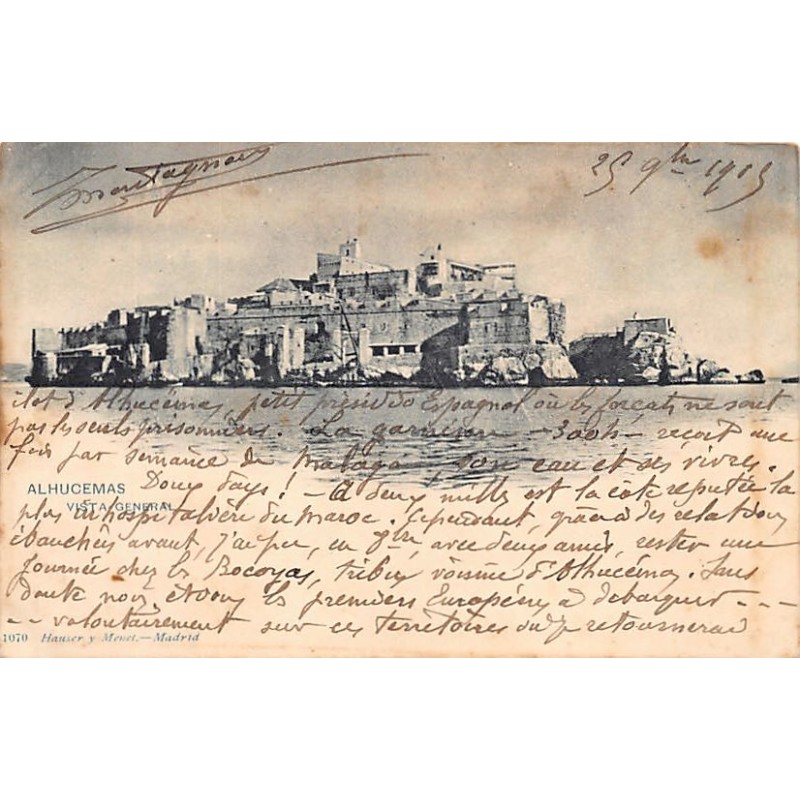 Montagnac
25 9bre 1905
ilot d'Alhucémas, petit présidio Espagnol où les forçats ne sont
pas les seuls prisonniers. La garnison - 300h - reçoit une
fois par semaine de Malaga, son eau et ses vivres.
ALHUCEMAS
VISTA GENERAL
Doux pays! - A deux milles est la côte reputée la
plus inhospitalière du Maroc. Cependant, grace à des relations
ébauchées avant, j'ai pu, en 8bre, avec deux amis, rester une
journée chez les Bocoyas, tribu voisine d'Alhucémas. Sans
doute nous étions les premiers Européens à débarquer - - -
- - volontairement sur ces territoires où je retournerai
1070 Hauser y Menet.—Madrid